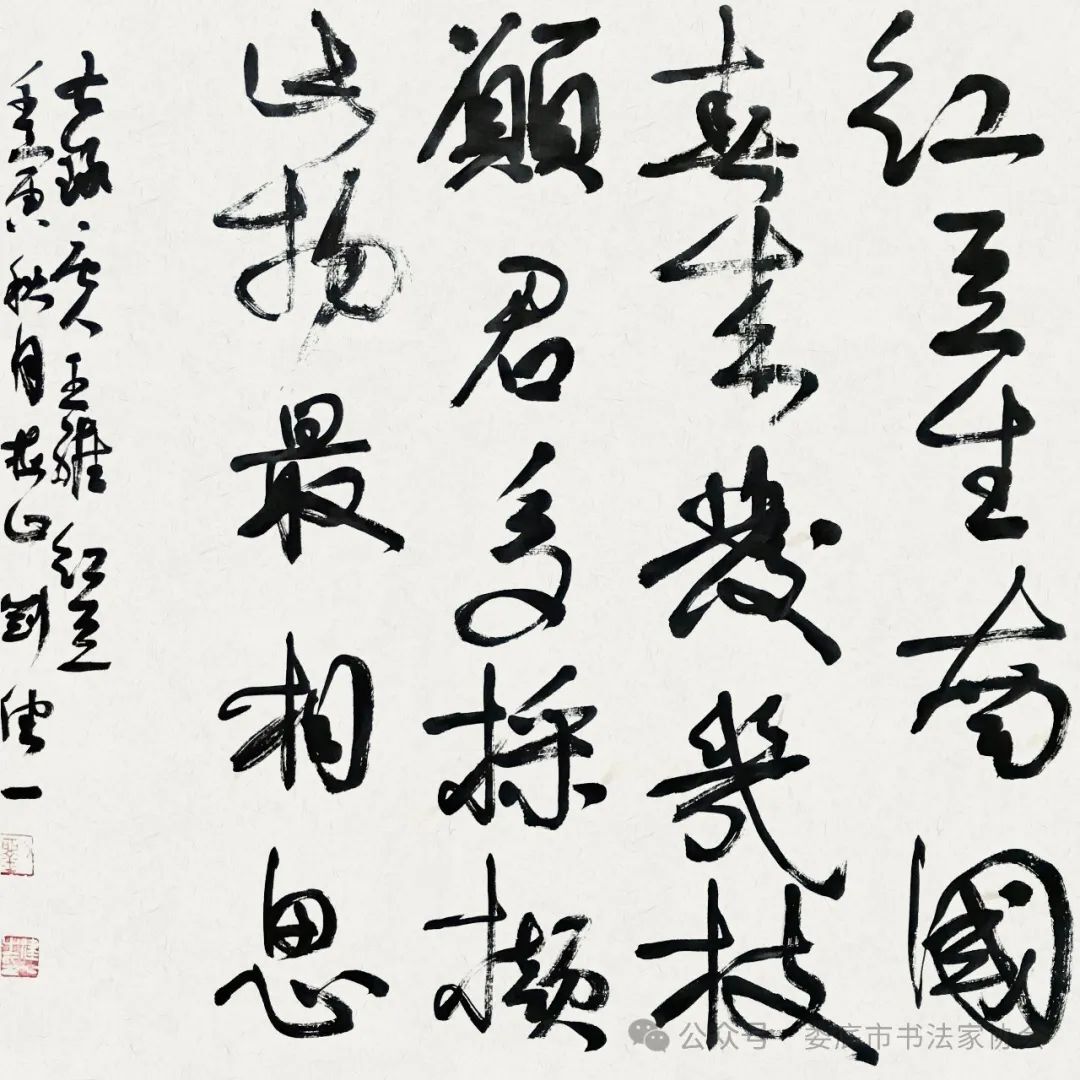 紅豆生南國
春來發幾枝
願君多採擷
此物最相思
王維紅豆
壬寅秋月梅山劉一
公众号·娄底市书法家协会